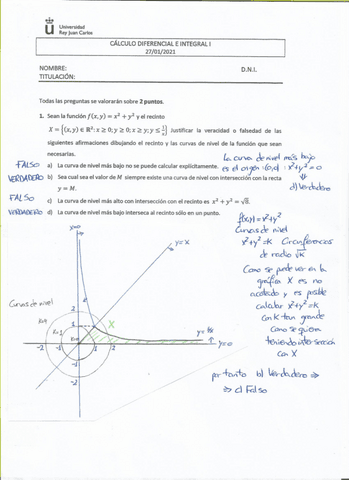 Universidad
Rey Juan Carlos
CÁLCULO DIFERENCIAL E INTEGRAL I
27/01/2021
NOMBRE: D.N.I.
TITULACIÓN:
Todas las preguntas se valorarán sobre 2 puntos.
1. Sean la función f(x, y) = x² + y² y el recinto
X = {(x, y) ∈ ℝ²: x ≥ 0; y ≥ 0; x ≥ y; y ≤ 1/x} Justificar la veracidad o falsedad de las
siguientes afirmaciones dibujando el recinto y las curvas de nivel de la función que sean
necesarias.
La curva de nivel más bajo
es el origen (0,0) : x²+y²=0
⇓
d) Verdadero
FALSO a) La curva de nivel más bajo no se puede calcular explícitamente.
VERDADERO b) Sea cual sea el valor de M siempre existe una curva de nivel con intersección con la recta
y = M.
FALSO c) La curva de nivel más alto con intersección con el recinto es x² + y² = √8.
VERDADERO d) La curva de nivel más bajo interseca al recinto sólo en un punto.
f(x,y)=x²+y²
Curvas de nivel
x²+y²=K Circunferencias
de radio √K
Como se puede ver en la
gráfica X es no
acotado y es posible
calcular x²+y²=K
con K tan grande
como se quiera
teniendo intersección
con X
por tanto b) Verdadero ⇒
⇒ c) Falso
x=0
y=x
Curvas de nivel
K=4
K=1
K=0
X
y=1/x
y=0
2
1
-2
-1
1
2
-1
-2